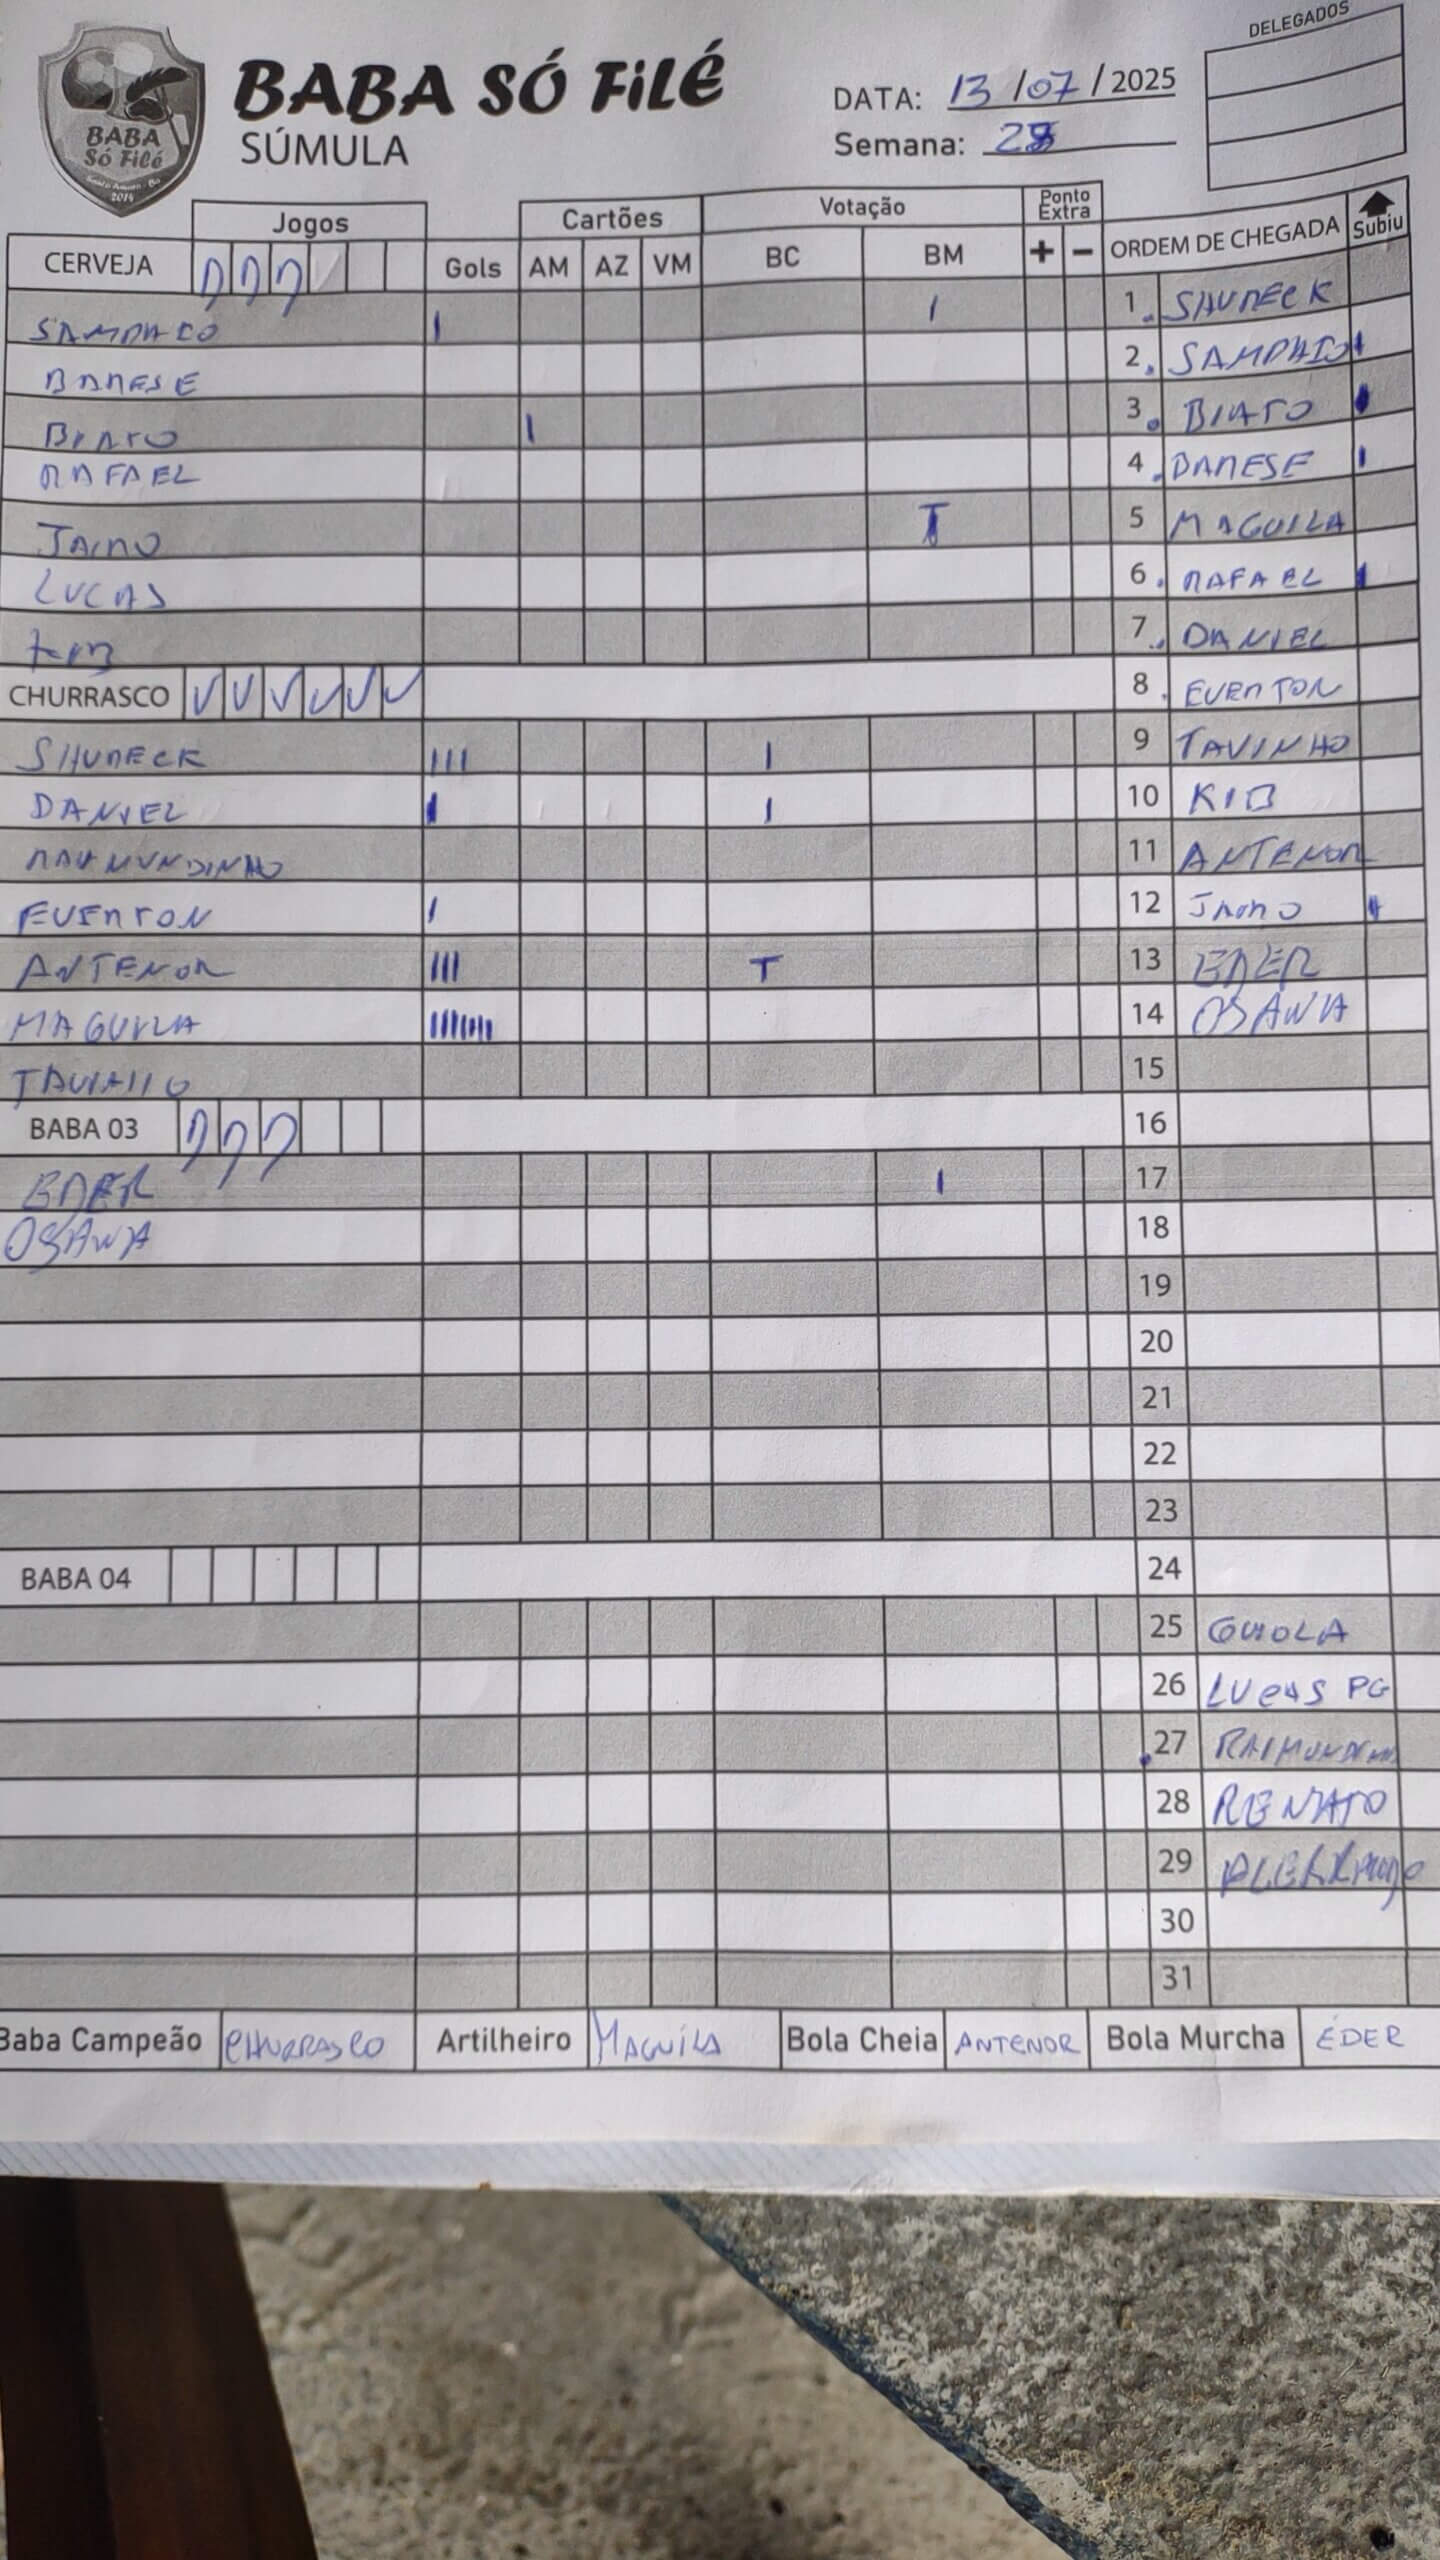 BABA Só Filé
Santo Amaro - Ba
2014
BABA SÓ FiLÉ
SÚMULA
DATA: 13/07/2025
Semana: 28
DELEGADOS
Jogos
Cartões
Votação
Ponto Extra
CERVEJA
Gols AM AZ VM BC BM + - ORDEM DE CHEGADA Subiu
SAMPAIO
BANESE
BIATO
RAFAEL
JAIRO
LUCAS
KIB
CHURRASCO V V V V V V
SHUNECK
DANIEL
RAYMUNDINHO
EVERTON
ANTENOR
MAGUILA
TAVINHO
BABA 03
EDER
OSAWA
BABA 04
1 SHUNECK
2 SAMPAIO
3 BIATO
4 BANESE
5 MAGUILA
6 RAFAEL
7 DANIEL
8 EVERTON
9 TAVINHO
10 KIB
11 ANTENOR
12 JAIRO
13 EDER
14 OSAWA
15
16
17
18
19
20
21
22
23
24
25
26 LUCAS PG
27 RAIMUNDINHO
28 RENATO
29
30
31
Baba Campeão CHURRASCO Artilheiro MAGUILA Bola Cheia ANTENOR Bola Murcha ÉDER